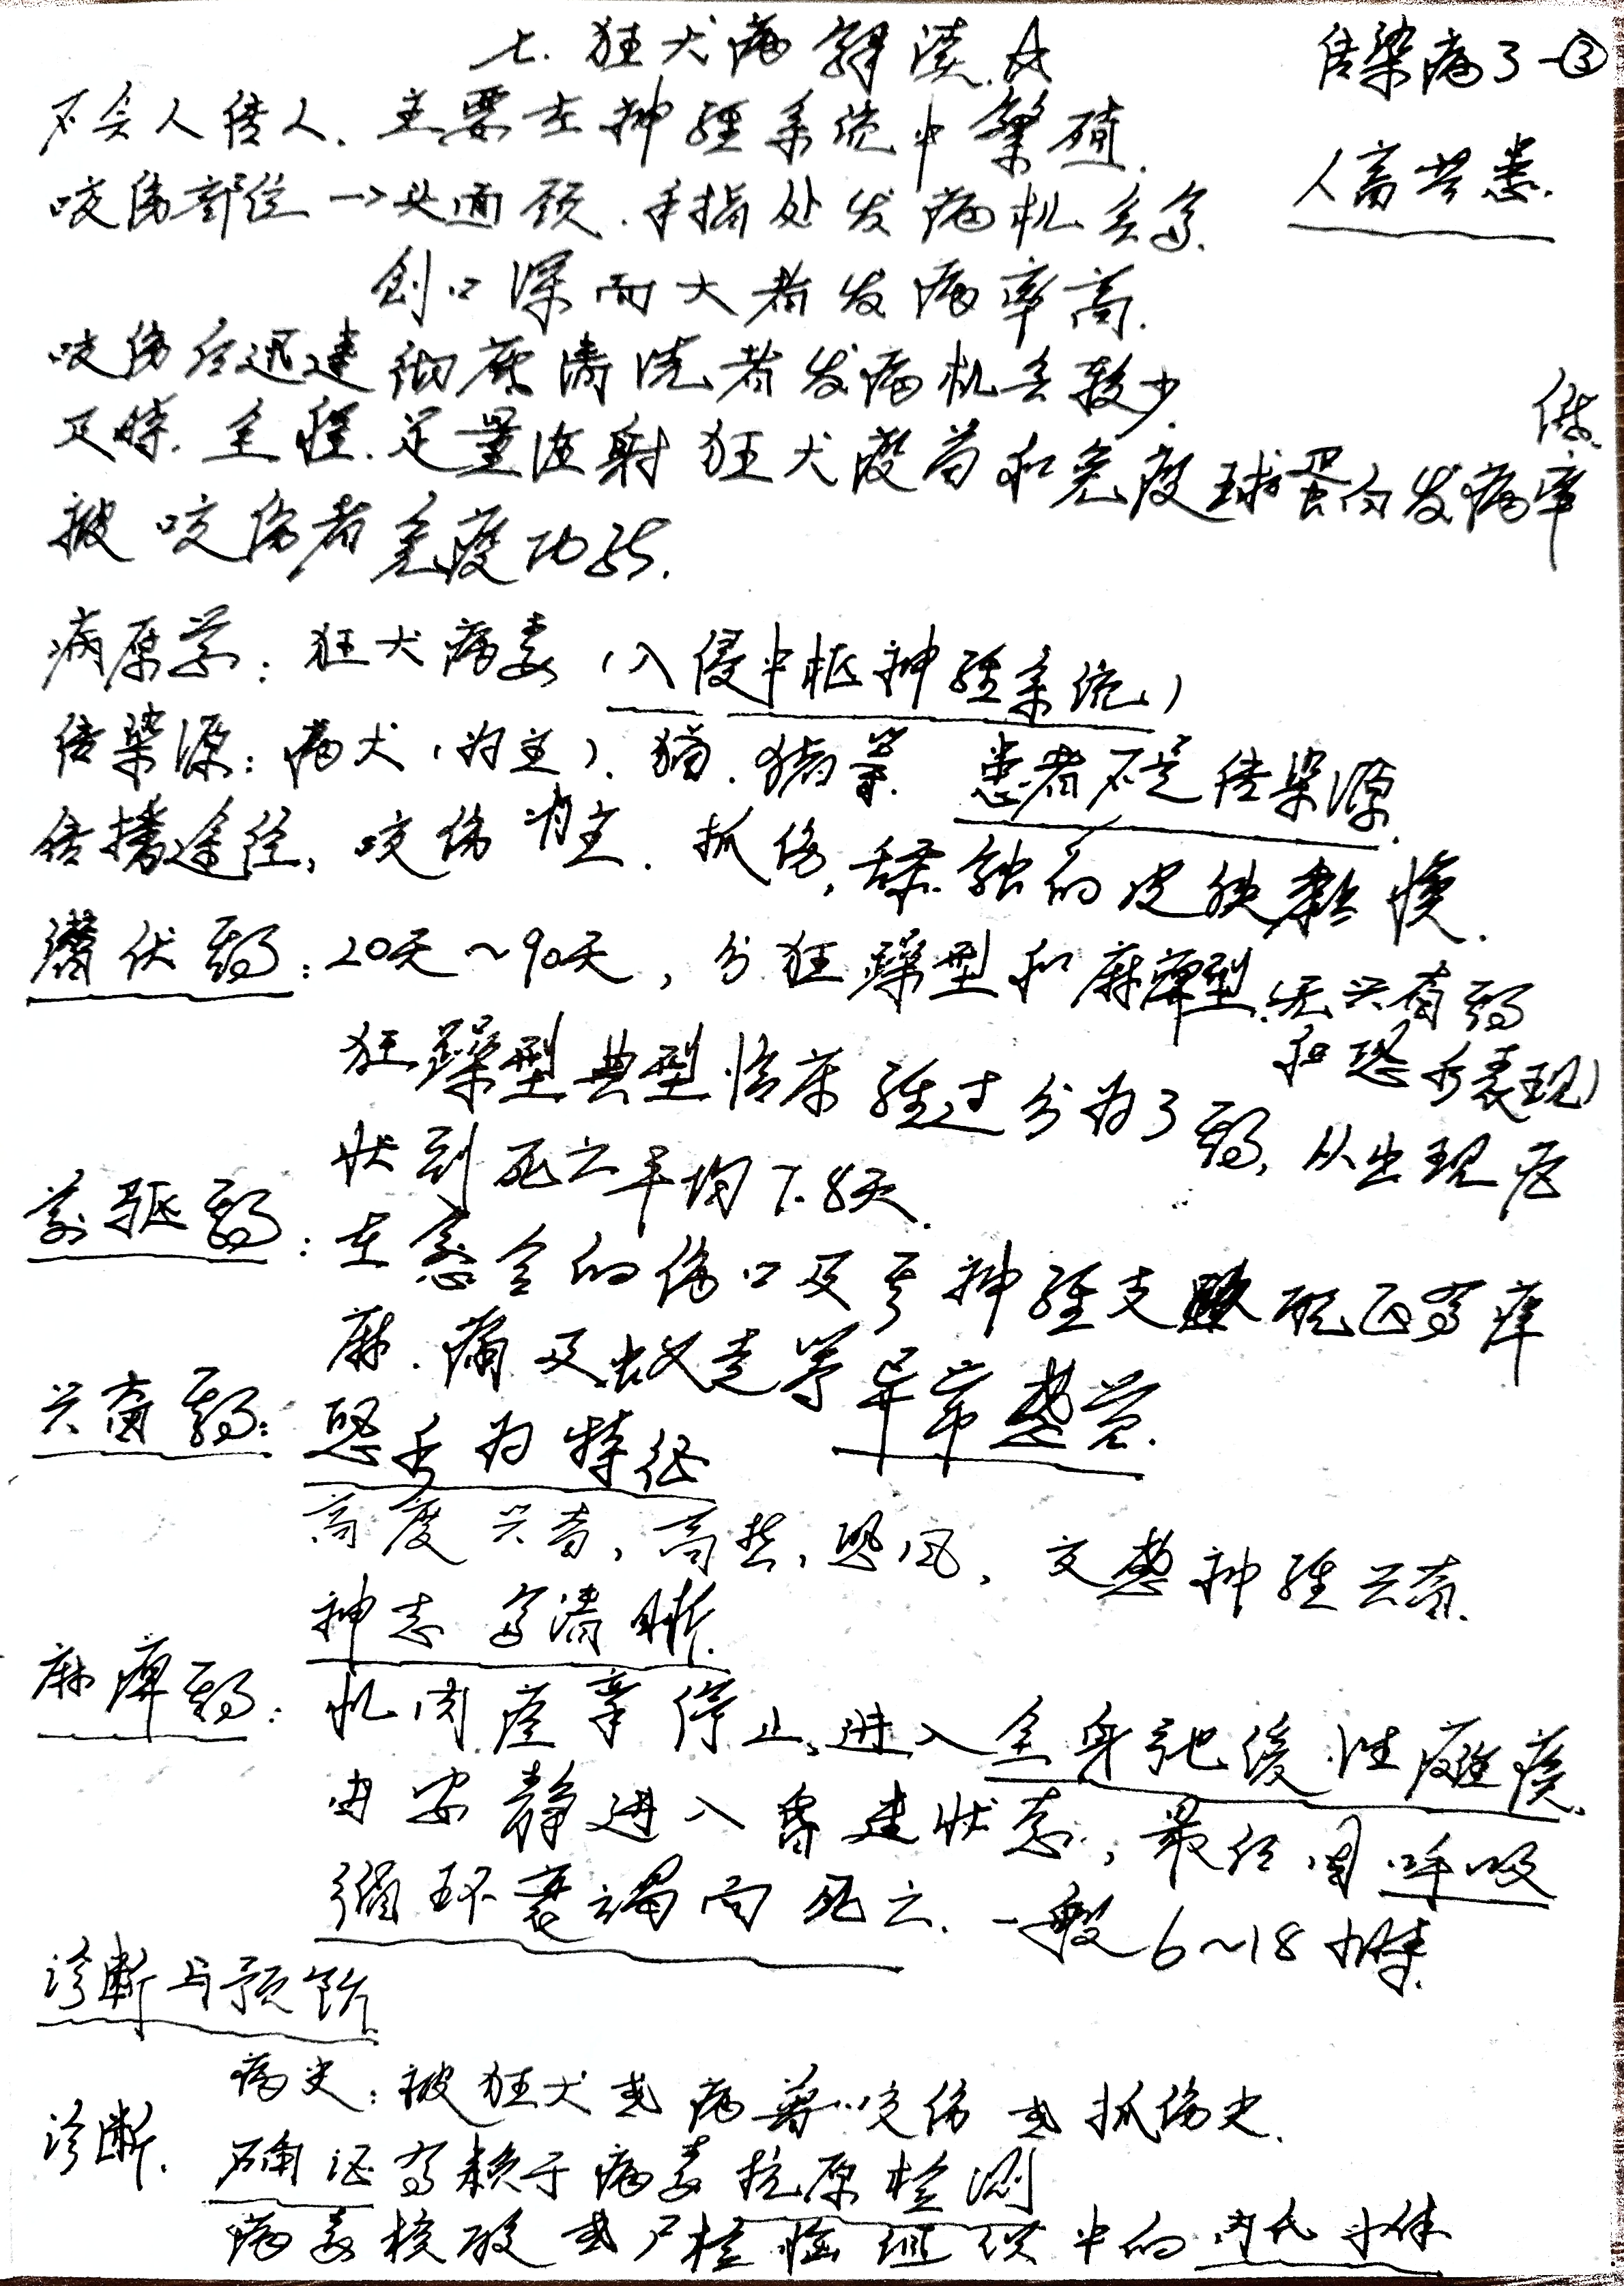 七.狂犬病解读.☆
传染病了-③
不会人传人.主要在神经系统中繁殖.
人畜共患.
咬伤部位→头面颈.手指处发病机会多.
创口深而大者发病率高.
咬伤后迅速彻底清洗者发病机会较少.
及时.全程.足量注射狂犬疫苗和免疫球蛋白发病率低.
被咬伤者免疫功能.
病原学:狂犬病毒(入侵中枢神经系统)
传染源:病犬(为主).猫.猪等.患者不是传染源.
传播途径,咬伤为主.抓伤,舔触的皮肤黏膜.
潜伏期:20天~90天,分狂躁型和麻痹型.(无兴奋期和恐水表现)
狂躁型典型临床经过分为3期,从出现症
状到死亡平均7.8天.
前驱期:在愈合的伤口及其神经支配区有痒
麻.痛及蚁走等异常感觉.
兴奋期:恐水为特征
高度兴奋,高热,恐风,交感神经兴奋.
神志多清晰.
麻痹期:肌肉痉挛停止,进入全身弛缓性瘫痪,
由安静进入昏迷状态,最后因呼吸
循环衰竭而死亡.一般6~18小时.
诊断与预防
病史:被狂犬或病兽咬伤或抓伤史.
诊断.确证有赖于病毒抗原检测
病毒核酸或尸检脑组织中的内氏小体